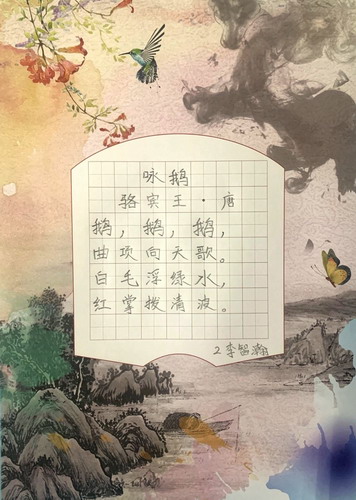 咏鹅
骆宾王·唐
鹅，鹅，鹅，
曲项向天歌。
白毛浮绿水，
红掌拨清波。
2李智瀚